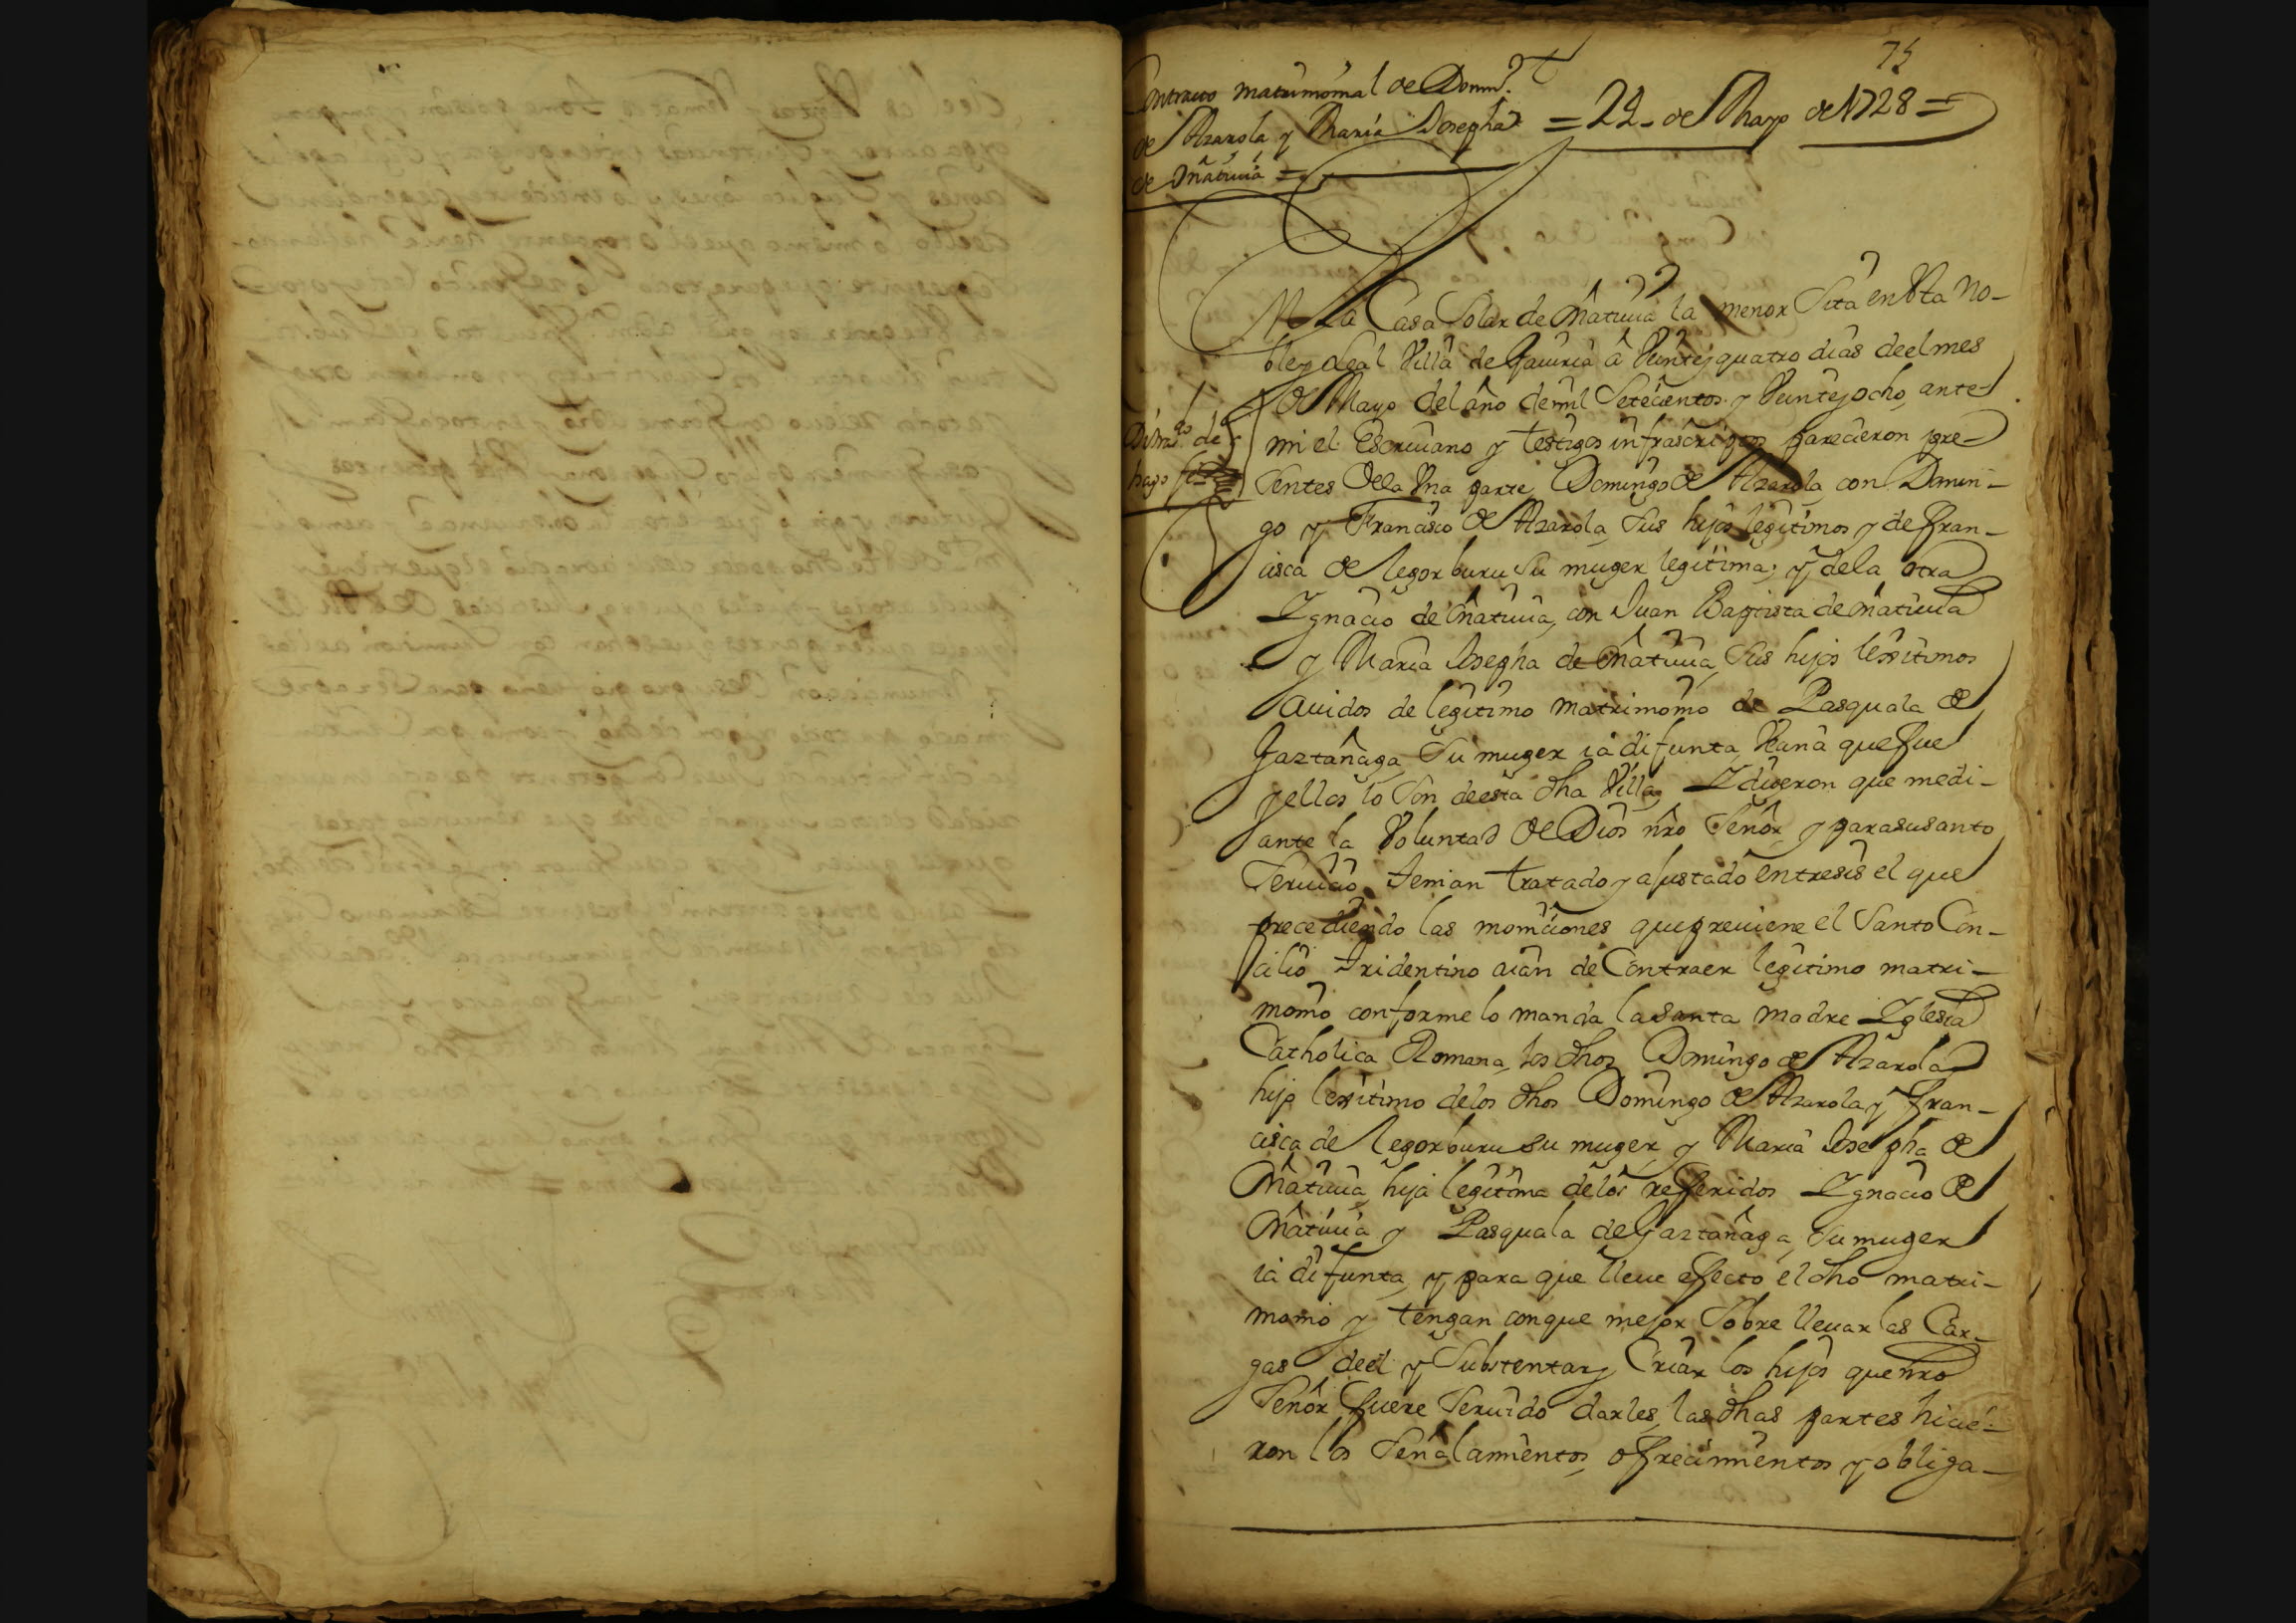 75
Contrato matrimonial de Domin.º
de Azarola y María Josepha = 24 de Mayo de 1728 =
de Mâtuuia =
En La Casa Solar de Mâtuuia la menor Sita en Esta No-
ble y Leal Villa de Gauiria â Veinte y quatro dias de el mes
de Mayo del año de mil Setecientos y Veinte y ocho, ante
mi el Escriuano y testigos infrascriptos parecieron pre-
sentes de la Vna parte, Domingo de Azarola, con Domin-
go y Francisco de Azarola, Sus hijos legitimos y de Fran-
cisca de legorburu Su muger legitima; y de la otra
Ygnacio de Mâtuuia, con Juan Baptista de Mâtuuia
y María Josepha de Mâtuuia, Sus hijos lexitimos
auidos de legitimo matrimonio de Pasquala de
Gaztañaga, Su muger iâ difunta, Vezina que fue
y ellos lo Son de esta dha Villa, Y dixeron que medi-
ante la Voluntad de Dios nrô Señor, y para su santo
Seruicio, tenian tratado y ajustado entre sis el que
precediendo las moniciones que preuiene el Santo Con-
cilio Tridentino aian de Contraer legitimo matri-
monio conforme lo manda la santa madre Yglesia
Catholica Romana, los dhos Domingo de Azarola
hijo lexitimo de los dhos Domingo de Azarola y Fran-
cisca de legorburu su muger, y María Josepha de
Mâtuuia, hija legitima de los refferidos Ygnacio de
Mâtuuia y Pasquala de Gaztañaga, Su muger
iâ difunta, y para que lleue effecto el dho matri-
monio y tengan con que mejor Sobre lleuar las Car-
gas de el y Substentar y Criar los hijos que nrô
Señor fuere Seruido darles, las dhas partes hicie-
ron los Señalamientos, offrecimientos y obliga-